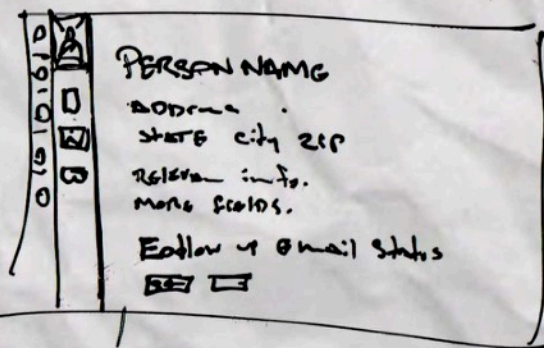 PERSON NAME
ADDress
STATE City ZIP
Relevan info.
MORE FIELDS.
Follow up Email Status